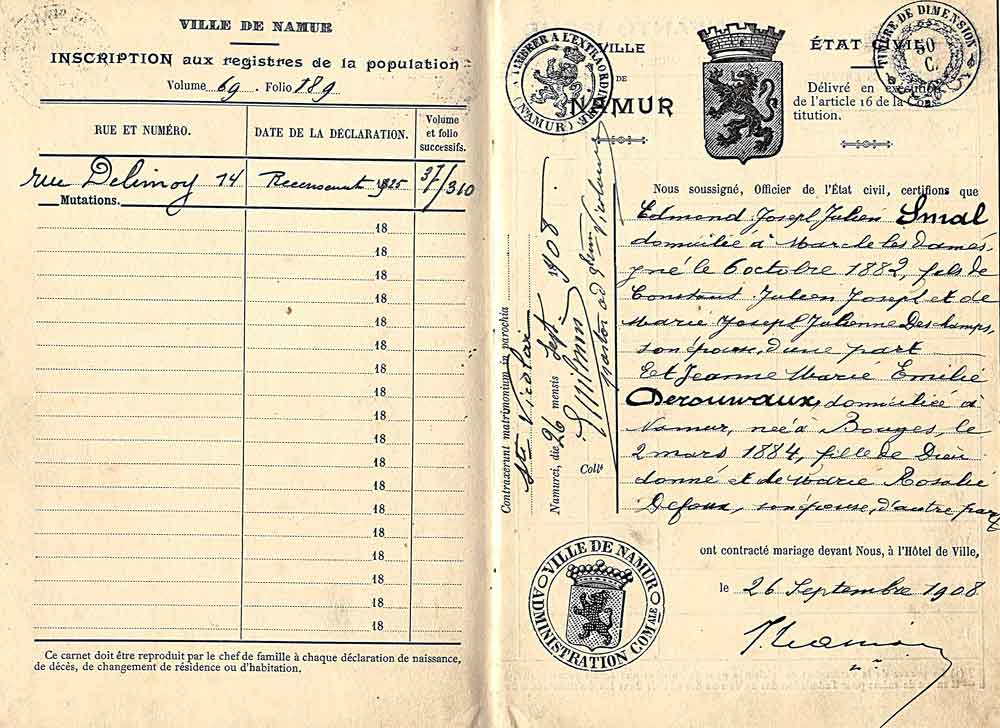 VILLE DE NAMUR
INSCRIPTION aux registres de la population
Volume 69. Folio 189
RUE ET NUMÉRO.
DATE DE LA DÉCLARATION.
Volume
et folio
successifs.
rue Delimoy 14
Recensement 1925
37/310
Mutations.
18
18
18
18
18
18
18
18
18
18
18
18
18
18
18
18
18
18
Ce carnet doit être reproduit par le chef de famille à chaque déclaration de naissance,
de décès, de changement de résidence ou d'habitation.
A TIMBRER A L'EXTRAORDINAIRE
(NAMUR)
VILLE
DE
NAMUR
ÉTAT CIVIL
TIMBRE DE DIMENSION
50
C.
Délivré en exécution
de l'article 16 de la Cons-
titution.
Contraxerunt matrimonium in parochia
Sti Nicolai
Namurci, die 26 mensis Sept. 1908.
pastor ad Sanctum Nicolaum
Nous soussigné, Officier de l'État civil, certifions que
Edmond Joseph Julien Smal
domicilié à Marche les Dames
né le 6 octobre 1882, fils de
Constant Julien Joseph et de
Marie Joseph Julienne Deschamps,
son épouse, d'une part
Et Jeanne Marie Emilie
Derouwaux, domiciliée à
Namur, née à Bouges, le
2 mars 1884, fille de Dieu
donné et de Marie Rosalie
Defoux, son épouse, d'autre part
ont contracté mariage devant Nous, à l'Hôtel de Ville,
le 26 Septembre 1908
VILLE DE NAMUR
ADMINISTRATION COM.ALE